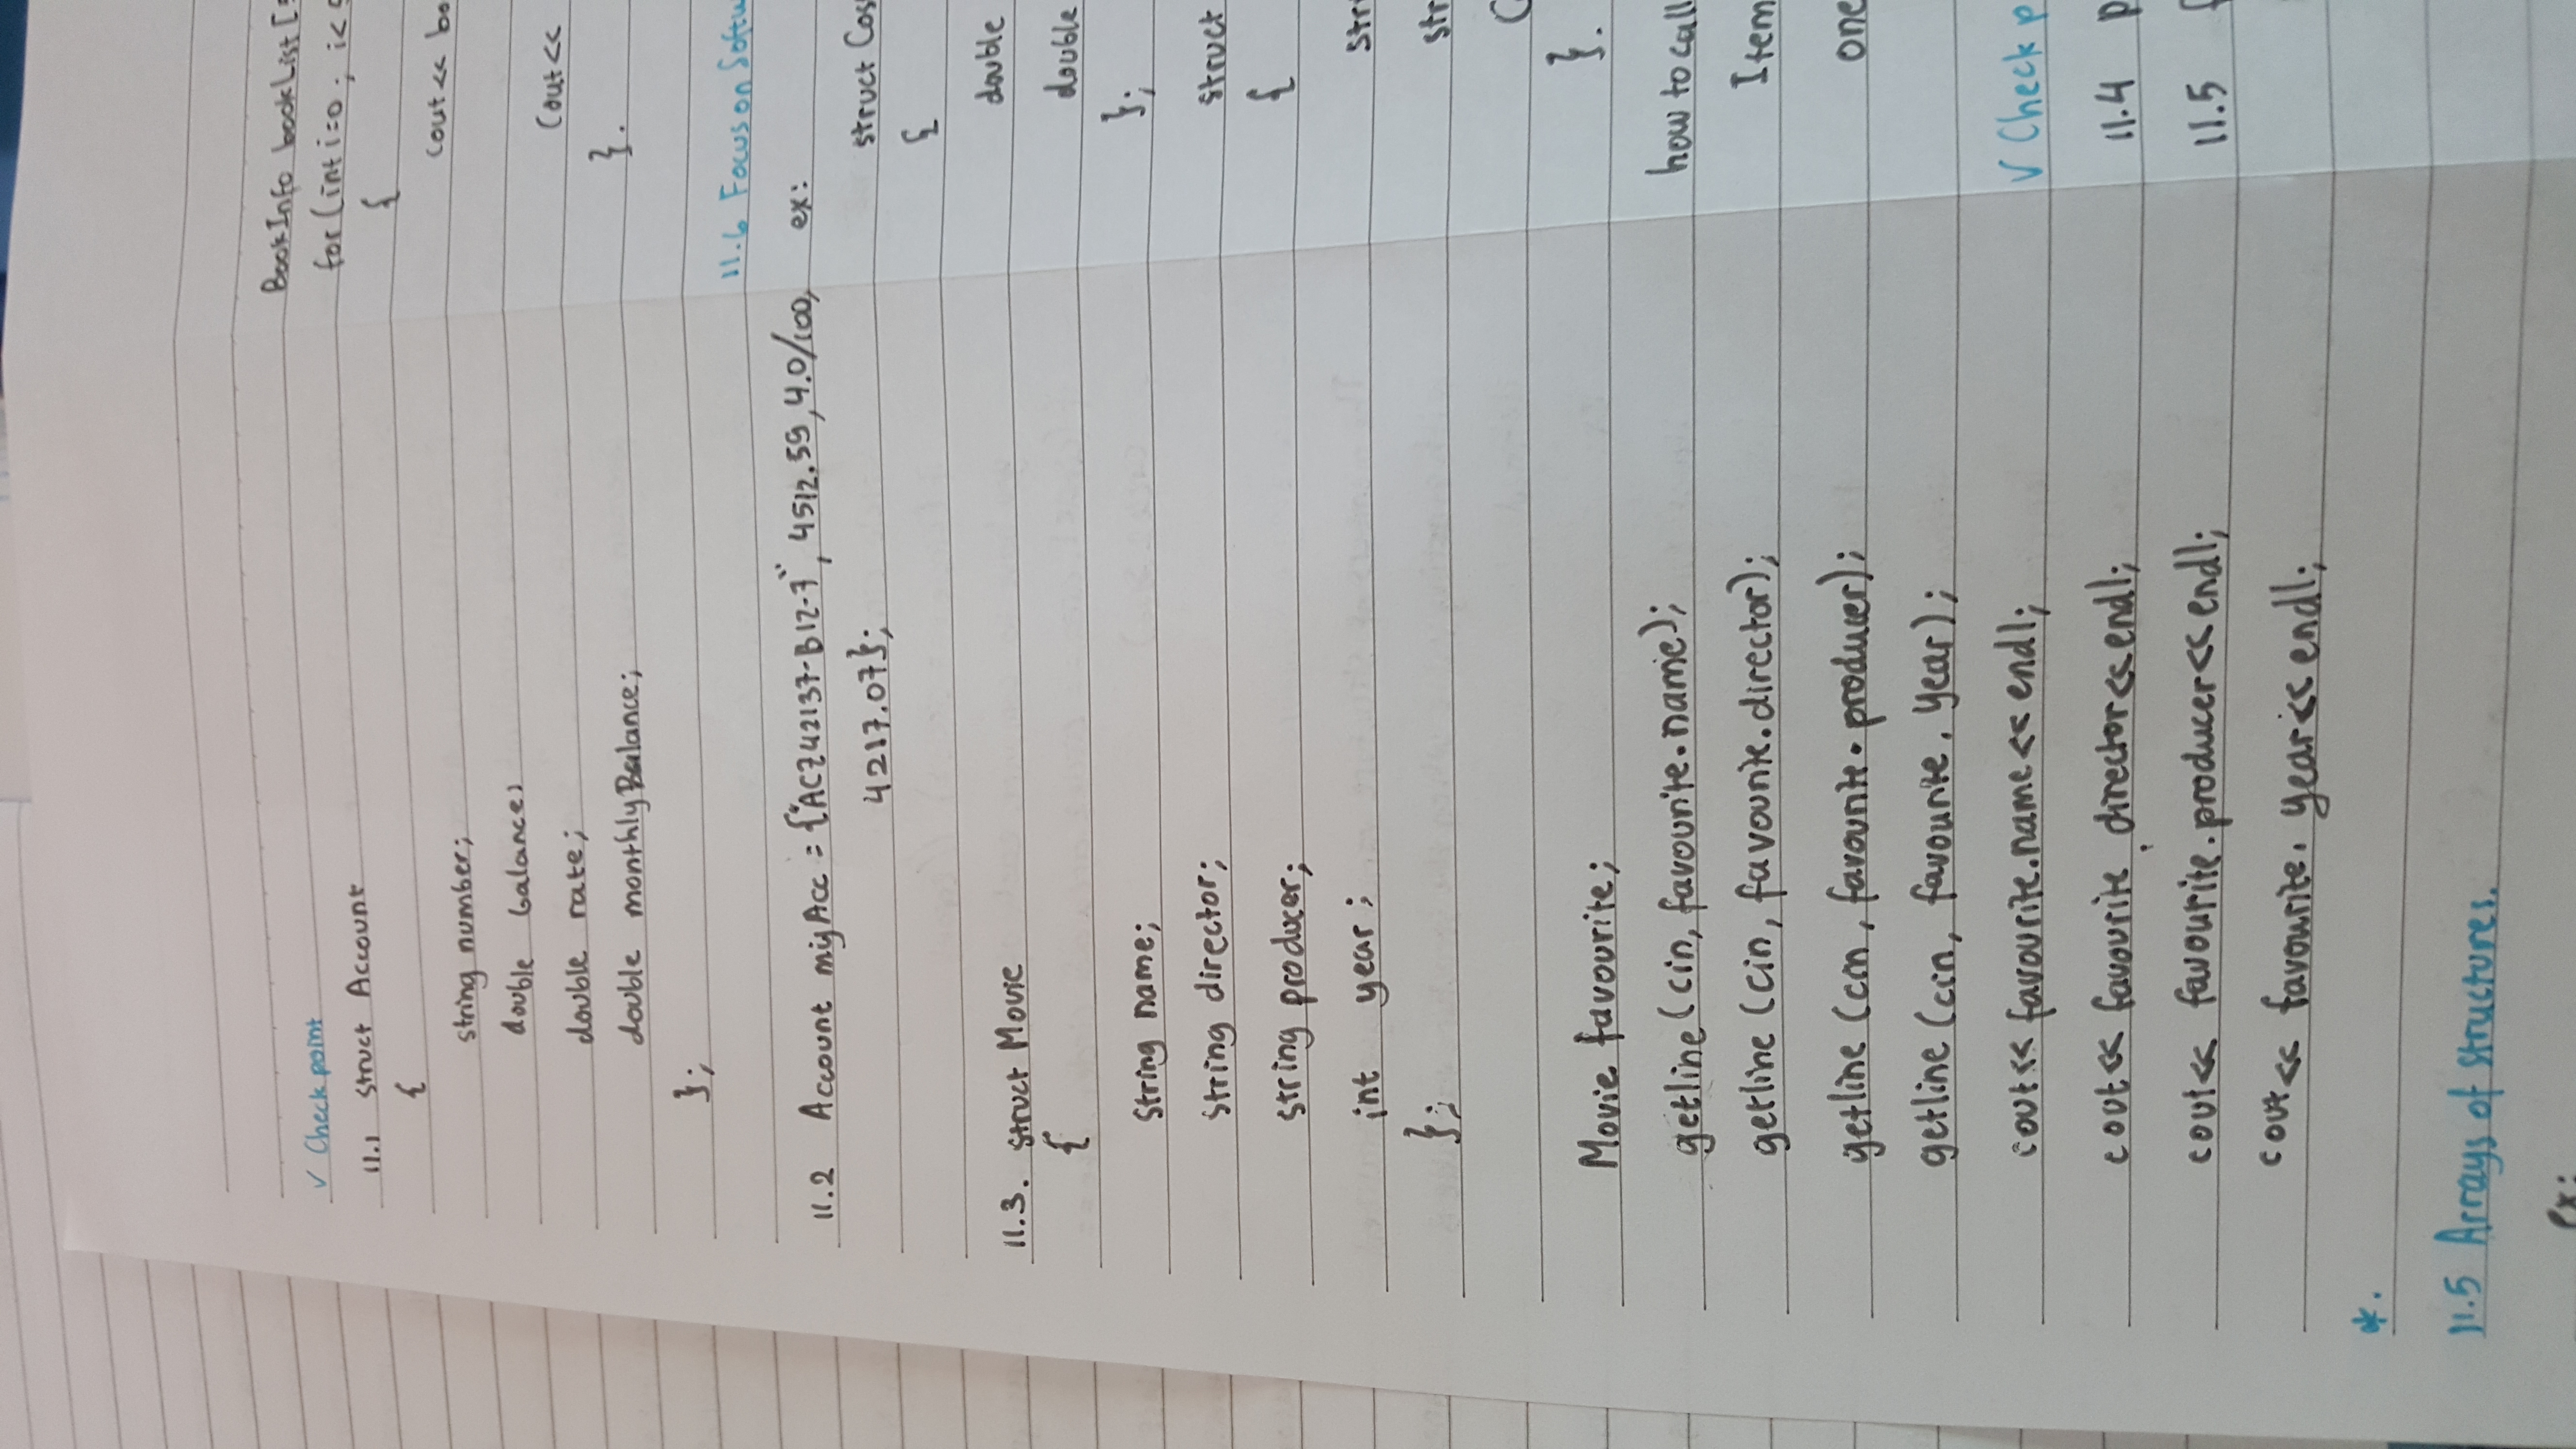 ✓ Check point
11.1 struct Account
{
string number;
double balance;
double rate;
double monthlyBalance;
};
11.2 Account myAcc = {"ACZ42137-B12-7", 4512.59, 4.0/100,
4217.07};
11.3. struct Movie
{
string name;
string director;
string producer;
int year;
};
Movie favourite;
getline (cin, favourite.name);
getline (cin, favourite.director);
getline (cin, favourite.producer);
getline (cin, favourite.year);
cout<< favourite.name<< endl;
cout<< favourite.director<< endl;
cout<< favourite.producer<< endl;
cout<< favourite.year<< endl;
*.
11.5 Arrays of structures.
ex:
BookInfo bookList[
for (int i=0; i<
{
cout<< bo
cout<<
}.
11.6 Focus on Softw
ex:
struct Cos
{
double
double
};
struct
{
str
str
C
}.
how to call
Item
one
✓ Check p
11.4 p
11.5